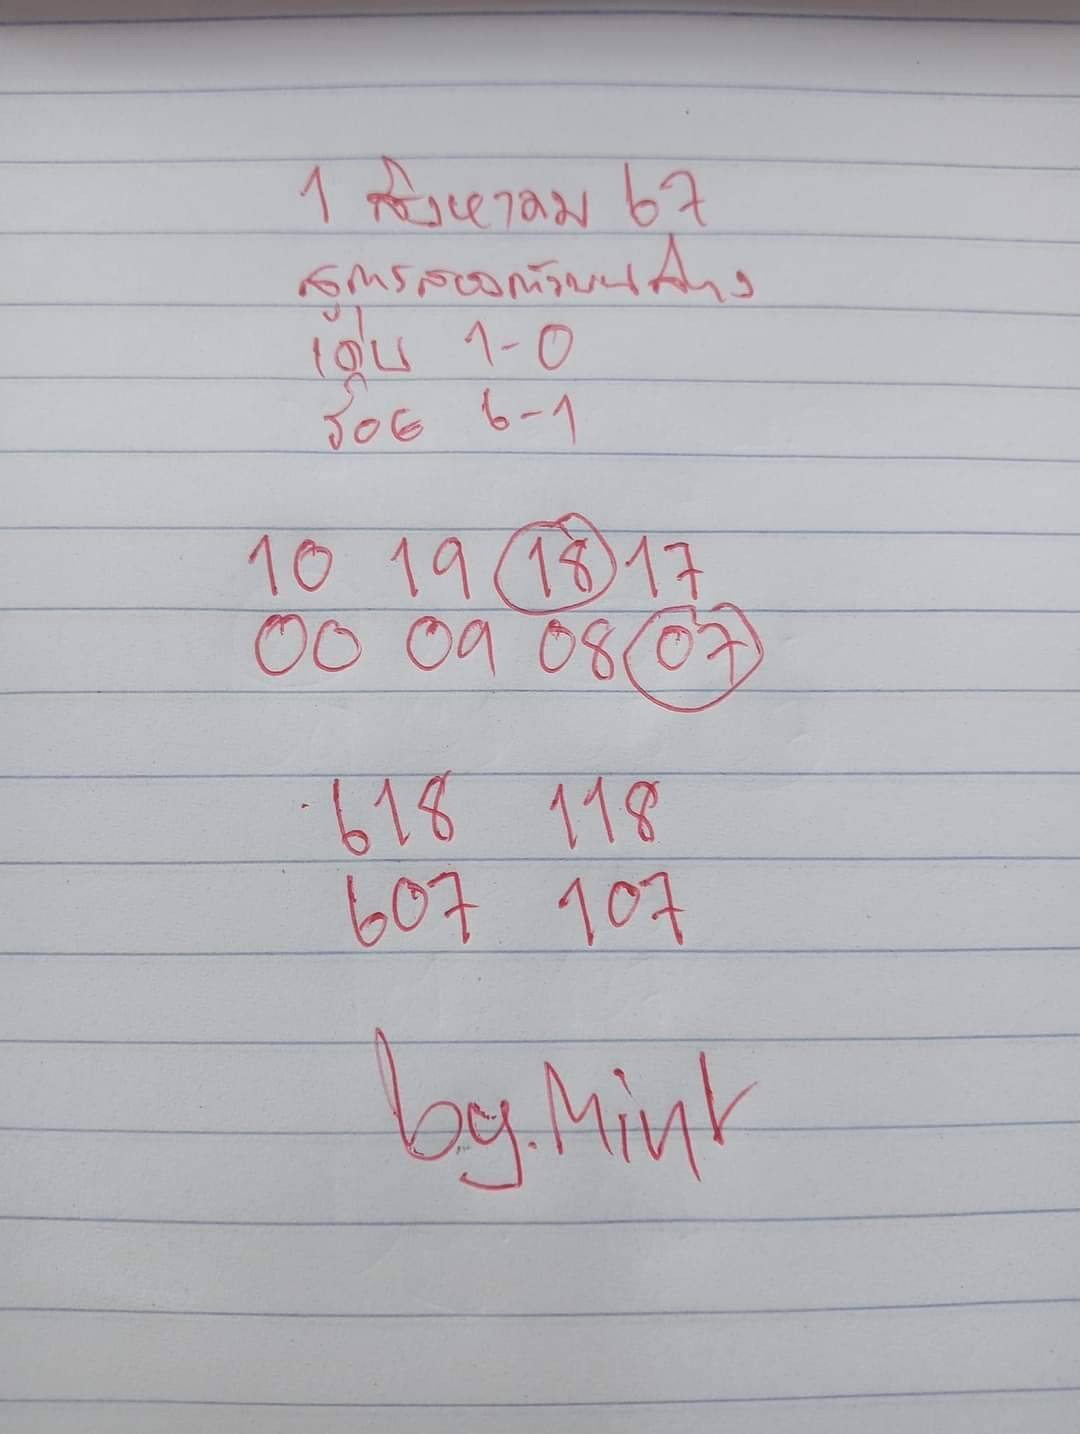 1 สิงหาคม 67
สูตรสองตัวบนล่าง
เด่น 1-0
ร้อย 6-1
10 19 18 17
00 09 08 07
618 118
607 107
by.Mint